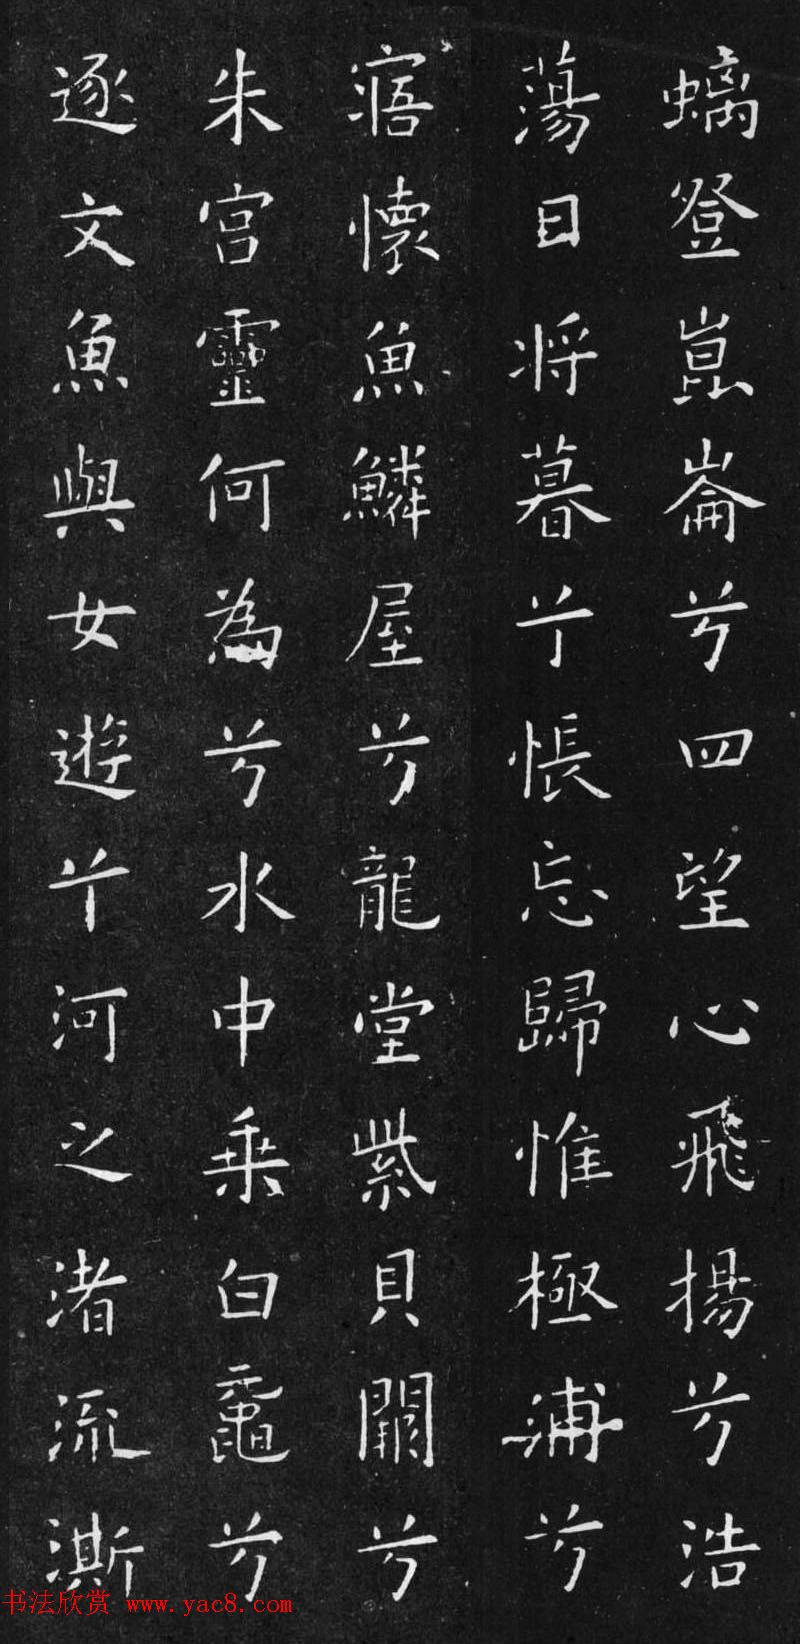 螭登崑崙兮四望心飛揚兮浩
蕩日將暮兮悵忘歸惟極浦兮
寤懷魚鱗屋兮龍堂紫貝闕兮
朱宮靈何為兮水中乗白黿兮
逐文魚與女遊兮河之渚流澌
书法欣赏 www.yac8.com